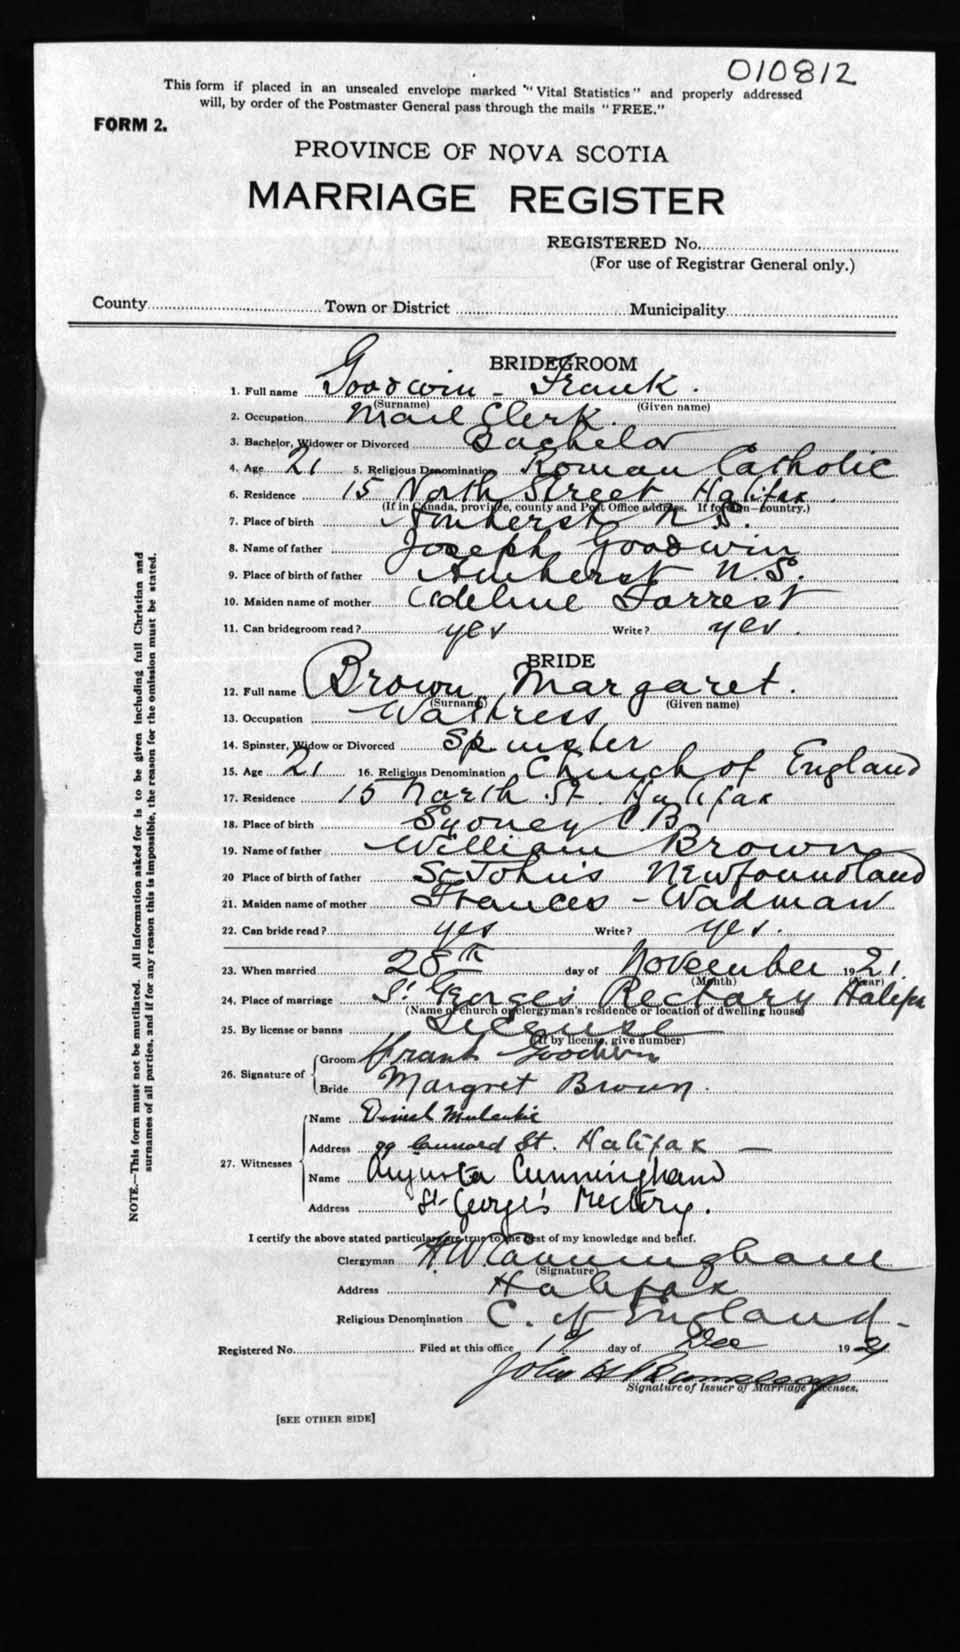 010812
This form if placed in an unsealed envelope marked "Vital Statistics" and properly addressed
will, by order of the Postmaster General pass through the mails "FREE."
FORM 2.
PROVINCE OF NOVA SCOTIA
MARRIAGE REGISTER
REGISTERED No.
(For use of Registrar General only.)
County Town or District Municipality
BRIDEGROOM
1. Full name Goodwin - Frank.
(Surname) (Given name)
2. Occupation Mail Clerk.
3. Bachelor, Widower or Divorced Bachelor
4. Age 21 5. Religious Denomination Roman Catholic
6. Residence 15 North Street Halifax.
(If in Canada, province, county and Post Office address. If foreign—country.)
7. Place of birth Amherst N.S.
8. Name of father Joseph Goodwin
9. Place of birth of father Amherst N.S.
10. Maiden name of mother Adeline Forrest
11. Can bridegroom read? yes Write? yes.
BRIDE
12. Full name Brown, Margaret.
(Surname) (Given name)
13. Occupation Waitress
14. Spinster, Widow or Divorced Spinster
15. Age 21 16. Religious Denomination Church of England
17. Residence 15 North St. Halifax
18. Place of birth Sydney C.B.
19. Name of father William Brown
20 Place of birth of father St John's Newfoundland
21. Maiden name of mother Frances - Wadman
22. Can bride read? yes Write? yes.
23. When married 28th day of November 1921.
(Month) (Year)
24. Place of marriage St George's Rectory Halifax
(Name of church or clergyman's residence or location of dwelling house)
25. By license or banns License
(If by license, give number)
26. Signature of Groom Frank Goodwin
Bride Margret Brown.
27. Witnesses
Name Daniel
Address 99 Cunnard St. Halifax —
Name Augusta Cunningham
Address St. George's Rectory.
I certify the above stated particulars are true to the best of my knowledge and belief.
Clergyman H W Cunningham
(Signature)
Address Halifax
Religious Denomination C. of England -
Registered No. Filed at this office day of Dec 1921
John H
Signature of Issuer of Marriage Licenses.
[SEE OTHER SIDE]
NOTE.—This form must not be mutilated. All information asked for is to be given including full Christian and
surnames of all parties, and if for any reason this is impossible, the reason for the omission must be stated.